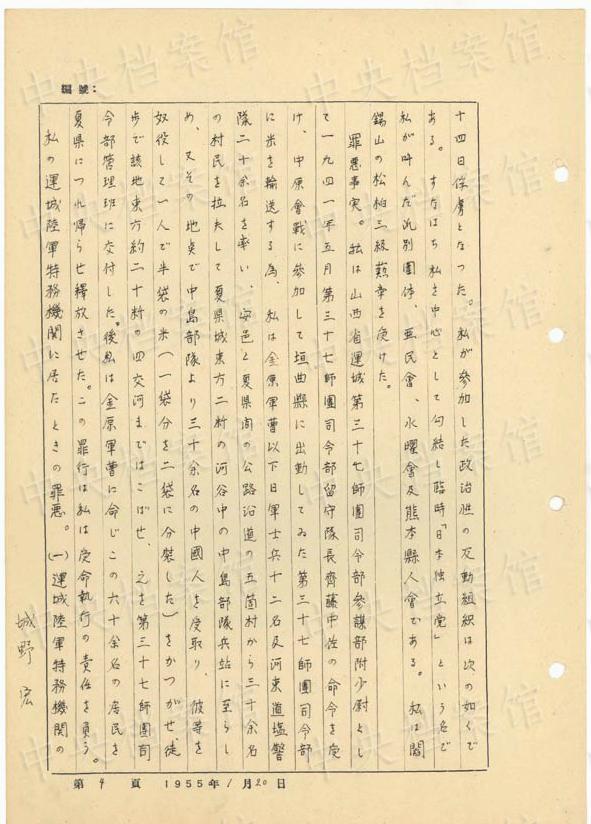 編號：
十四日俘虜となつた。私が参加した政治性の反動組織は次の如くで
ある。すなはち私を中心として勾結し臨時「日本独立党」という名で
私が叫んだ派別團体、亜民會、水曜會及熊本縣人會である。私は閻
錫山の松柏三級勲章を受けた。
罪悪事実。私は山西省運城第三十七師團司令部参謀部附少尉とし
て一九四一年五月第三十七師團司令部留守隊長齊藤中佐の命令を受
け、中原會戰に参加して垣曲縣に出動してゐた第三十七師團司令部
に米を輸送する為、私は金原軍曹以下日軍士兵十二名及河東道塩警
隊二十余名を率い、安邑と夏県間の公路沿道の五箇村から三十余名
の村民を拉夫して夏県城東方二粁の河谷中の中島部隊兵站に至らし
め、又その地点で中島部隊より三十余名の中國人を受取り、彼等を
奴役して一人で半袋の米（一袋分を二袋に分裝した）をかつがせ、徒
歩で該地東方約二十粁の四交河まではこばせ、之を第三十七師團司
令部管理班に交付した。後私は金原軍曹に命じこの六十余名の居民を
夏県につれ帰らせ釋放させた。この罪行は私は受命執行の責任を負う。
私の運城陸軍特務機関に居たときの罪悪。(一)運城陸軍特務機関の
城野宏
第4頁 1955年1月20日
中央档案馆